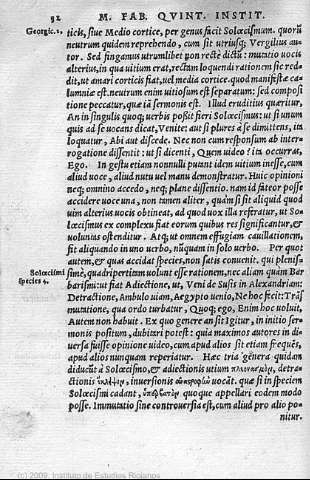 92 M. FAB. QVINT. INSTIT.
Georgic. 2. ticis, siue Medio cortice, per genus facit Solœcismum. quorũ
neutrum quidem reprehendo, cum sit vtriusq; Vergilius au-
tor. Sed fingamus vtrumlibet non recte dictũ: mutatio vocis
alterius, in qua vitium erat, rectam loquendi rationem sic red-
dit, vt amari corticis fiat, vel media cortice. quod manifestæ ca-
lumniæ est. neutrum enim vitiosum est separatum: sed composi
tione peccatur, quæ iã sermonis est. Illud eruditius quæritur,
An in singulis quoq; verbis possit fieri Solœcismus: vt si vnum
quis ad se vocans dicat, Venite: aut si plures a se dimittens, ita
loquatur, Abi aut discede. Nec non cum responsum ab inter-
rogatione dissentit: vt si dicenti, Quem video? ita occurras,
Ego. In gestu etiam nonnulli putant idem vitium inesse, cum
aliud voce, aliud nutu vel manu demonstratur. Huic opinioni
neq; omnino accedo, neq; plane dissentio. nam id fateor posse
accidere voce vna, non tamen aliter, quàm si sit aliquid quod
vim alterius vocis obtineat, ad quod vox illa referatur, vt So-
lœcismus ex complexu fiat eorum quibus res significantur, &
voluntas ostenditur. Atq; vt omnem effugiam cauillationem,
sit aliquando in vno verbo, nũquam in solo verbo. Per quot
autem, & quas accidat species, non satis conuenit. qui plenis-
Solœcismi simè, quadripertitam volunt esse rationem, nec aliam quàm Bar
species 4. barismi: vt fiat Adiectione, vt, Veni de Susis in Alexandriam:
Detractione, Ambulo viam, Aegypto venio, Ne hoc fecit: Trãs
mutatione, qua ordo turbatur, Quoq; ego, Enim hoc voluit,
Autem non habuit. Ex quo genere an sit Igitur, in initio ser-
monis positum, dubitari potest: quia maximos autores in di-
uersa fuisse opinione video, cum apud alios sit etiam frequẽs,
apud alios nunquam reperiatur. Hæc tria genera quidam
diducũt à Solœcismo, & adiectionis vitium πλεονασμὸν, detra-
ctionis ἔλλειψιν, inuersionis ἀναστροφὴν vocãt. quæ si in speciem
Solœcismi cadant, ὑπερβατὸν quoque appellari eodem modo
posse. Immutatio sine controuersia est, cum aliud pro alio po-
nitur.
(c) 2009, Instituto de Estudios Riojanos